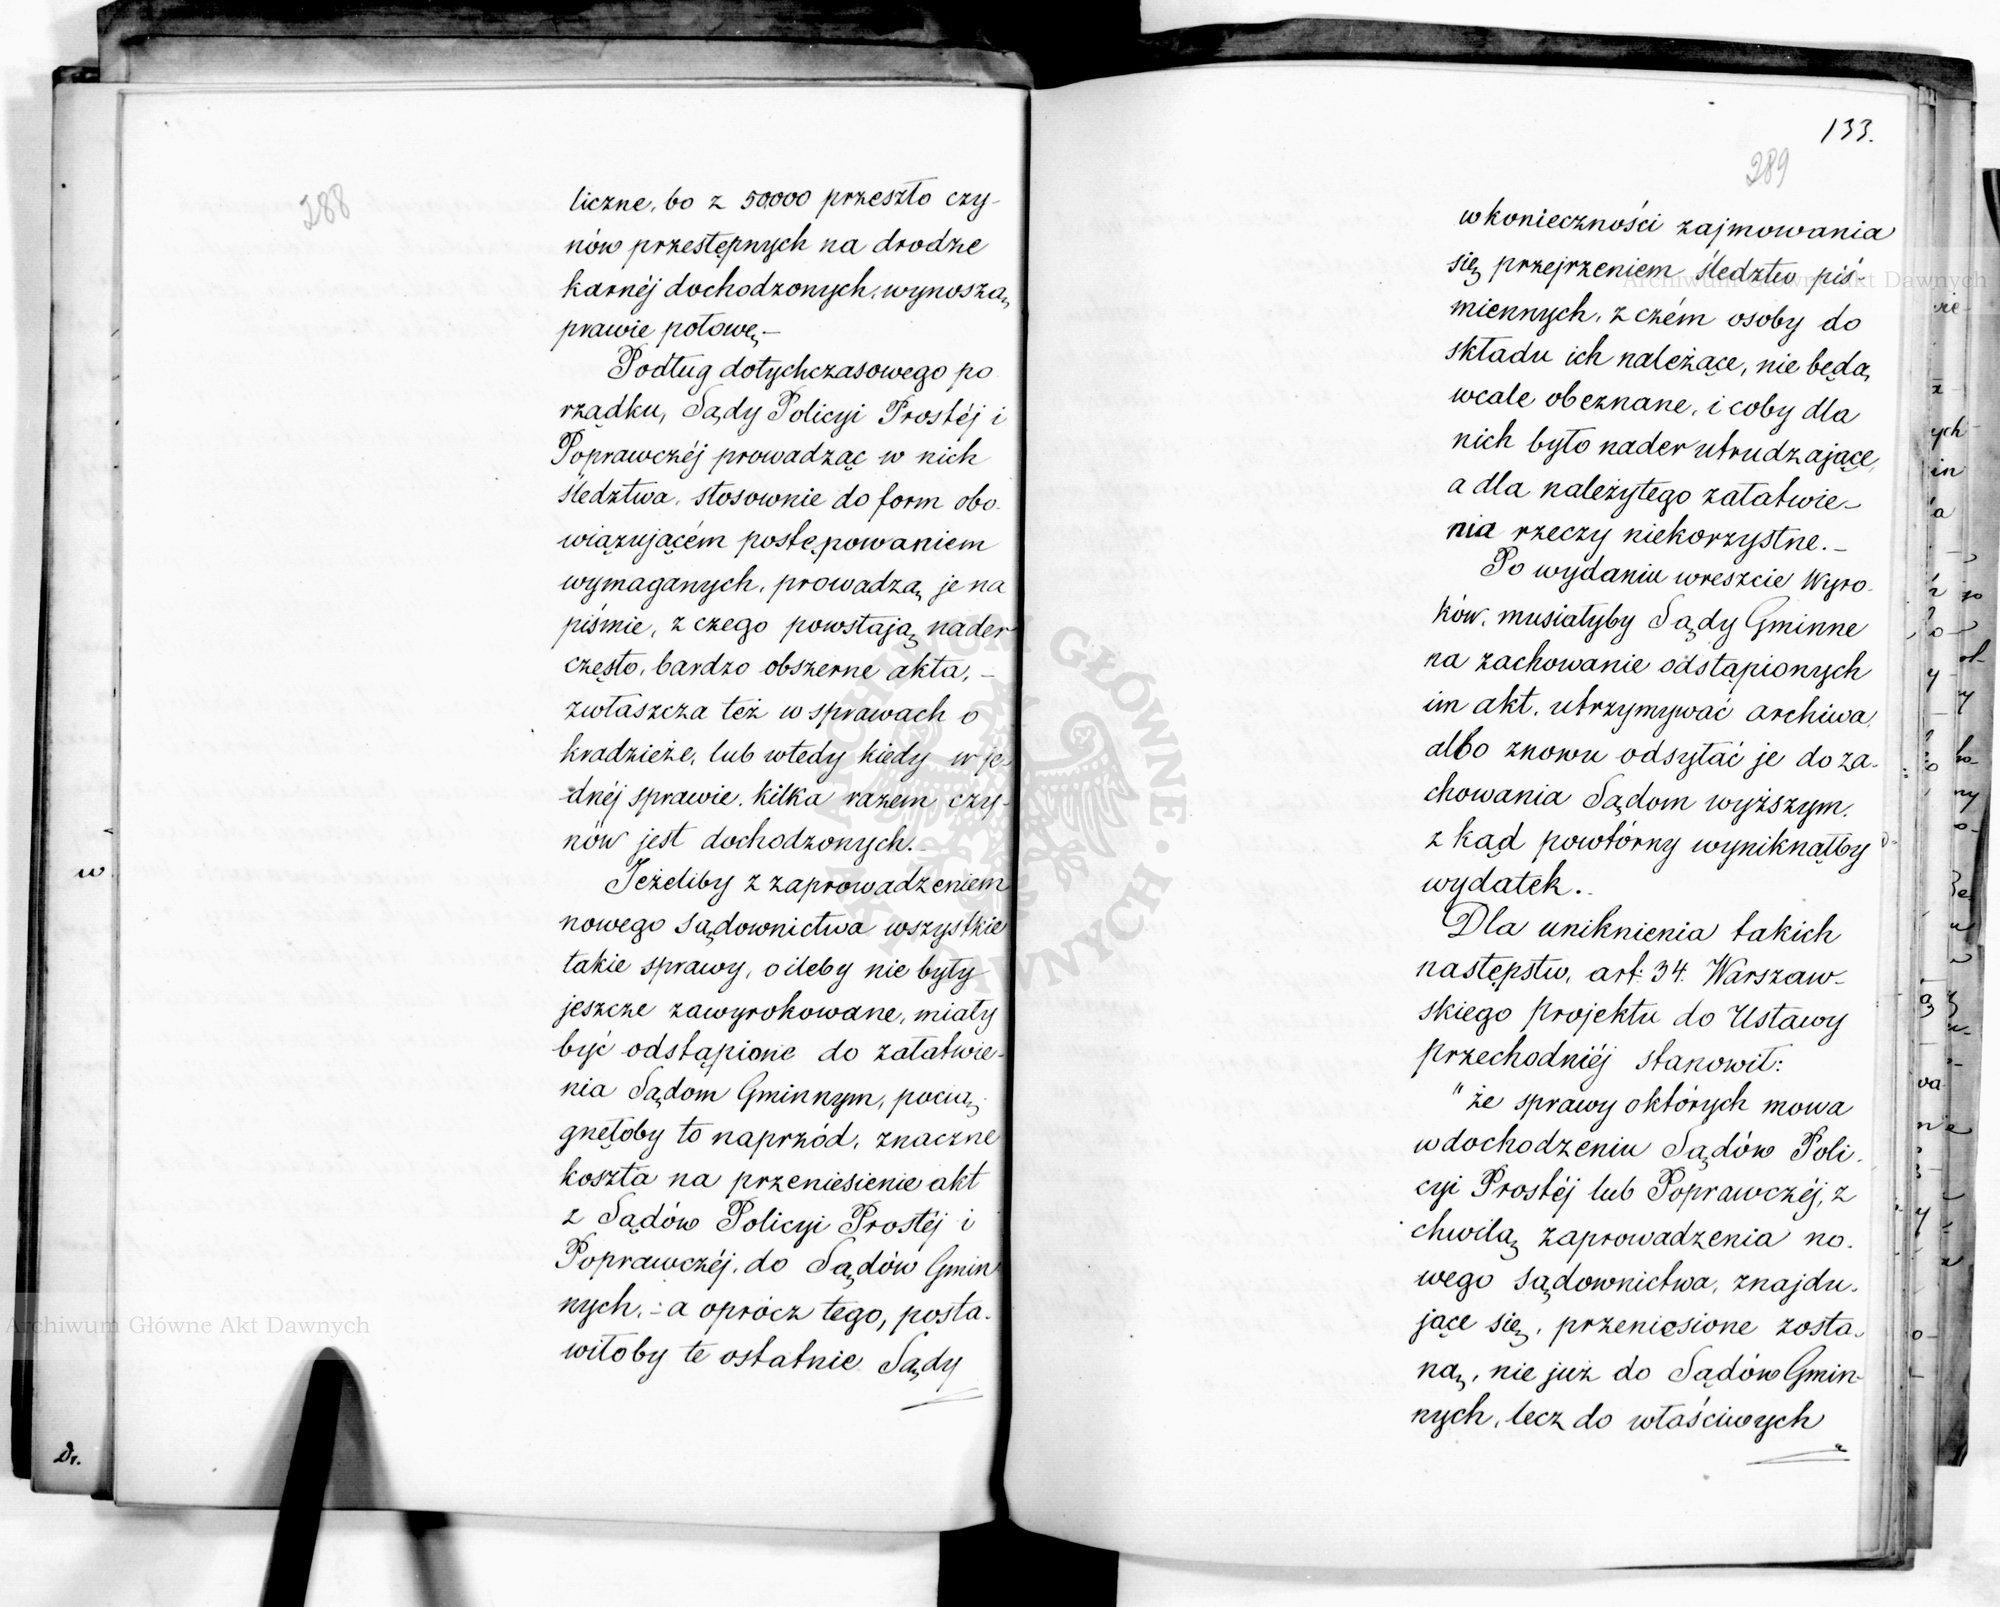 288
liczne, bo z 50000 przeszło czy-
nów przestępnych na drodze
karnéj dochodzonych, wynoszą
prawie połowę.-
Podług dotychczasowego po
rządku, Sądy Policyi Prostéj i
Poprawczéj prowadząc w nich
śledztwa, stosownie do form obo-
wiązującém postępowaniem
wymaganych, prowadzą je na
piśmie, z czego powstają nader
często, bardzo obszerne akta, -
zwłaszcza też w sprawach o
kradzieże, lub wtedy kiedy w je-
dnéj sprawie, kilka razem czy-
nów jest dochodzonych.-
Jeżeliby z zaprowadzeniem
nowego sądownictwa wszystkie
takie sprawy, o ileby nie były
jeszcze zawyrokowane, miały
być odstąpione do załatwie-
nia Sądom Gminnym, pocią-
gnęłoby to naprzód, znaczne
koszta na przeniesienie akt
z Sądów Policyi Prostéj i
Poprawczéj, do Sądów Gmin
nych, - a oprócz tego, posta-
wiłoby te ostatnie Sądy
133.
289
w konieczności zajmowania
się przejrzeniem śledztw piś-
miennych, z czém osoby do
składu ich należące, nie będą
wcale obeznane, i coby dla
nich było nader utrudzające,
a dla należytego załatwie-
nia rzeczy niekorzystne.-
Po wydaniu wreszcie Wyro-
ków, musiałyby Sądy Gminne
na zachowanie odstąpionych
im akt, utrzymywać archiwa,
albo znowu odsyłać je do za-
chowania Sądom wyższym,
z kąd powtórny wyniknąłby
wydatek.-
Dla uniknienia takich
następstw, art: 34. Warszaw-
skiego projektu do Ustawy
przechodniéj stanowił:
"że sprawy o których mowa
w dochodzeniu Sądów Poli-
cyi Prostéj lub Poprawczéj, z
chwilą zaprowadzenia no-
wego sądownictwa, znajdu-
jące się, przeniesione zosta-
ną, nie już do Sądów Gmin-
nych, lecz do właściwych
Archiwum Główne Akt Dawnych
Archiwum Główne Akt Dawnych
ARCHIWUM GŁÓWNE AKT DAWNYCH